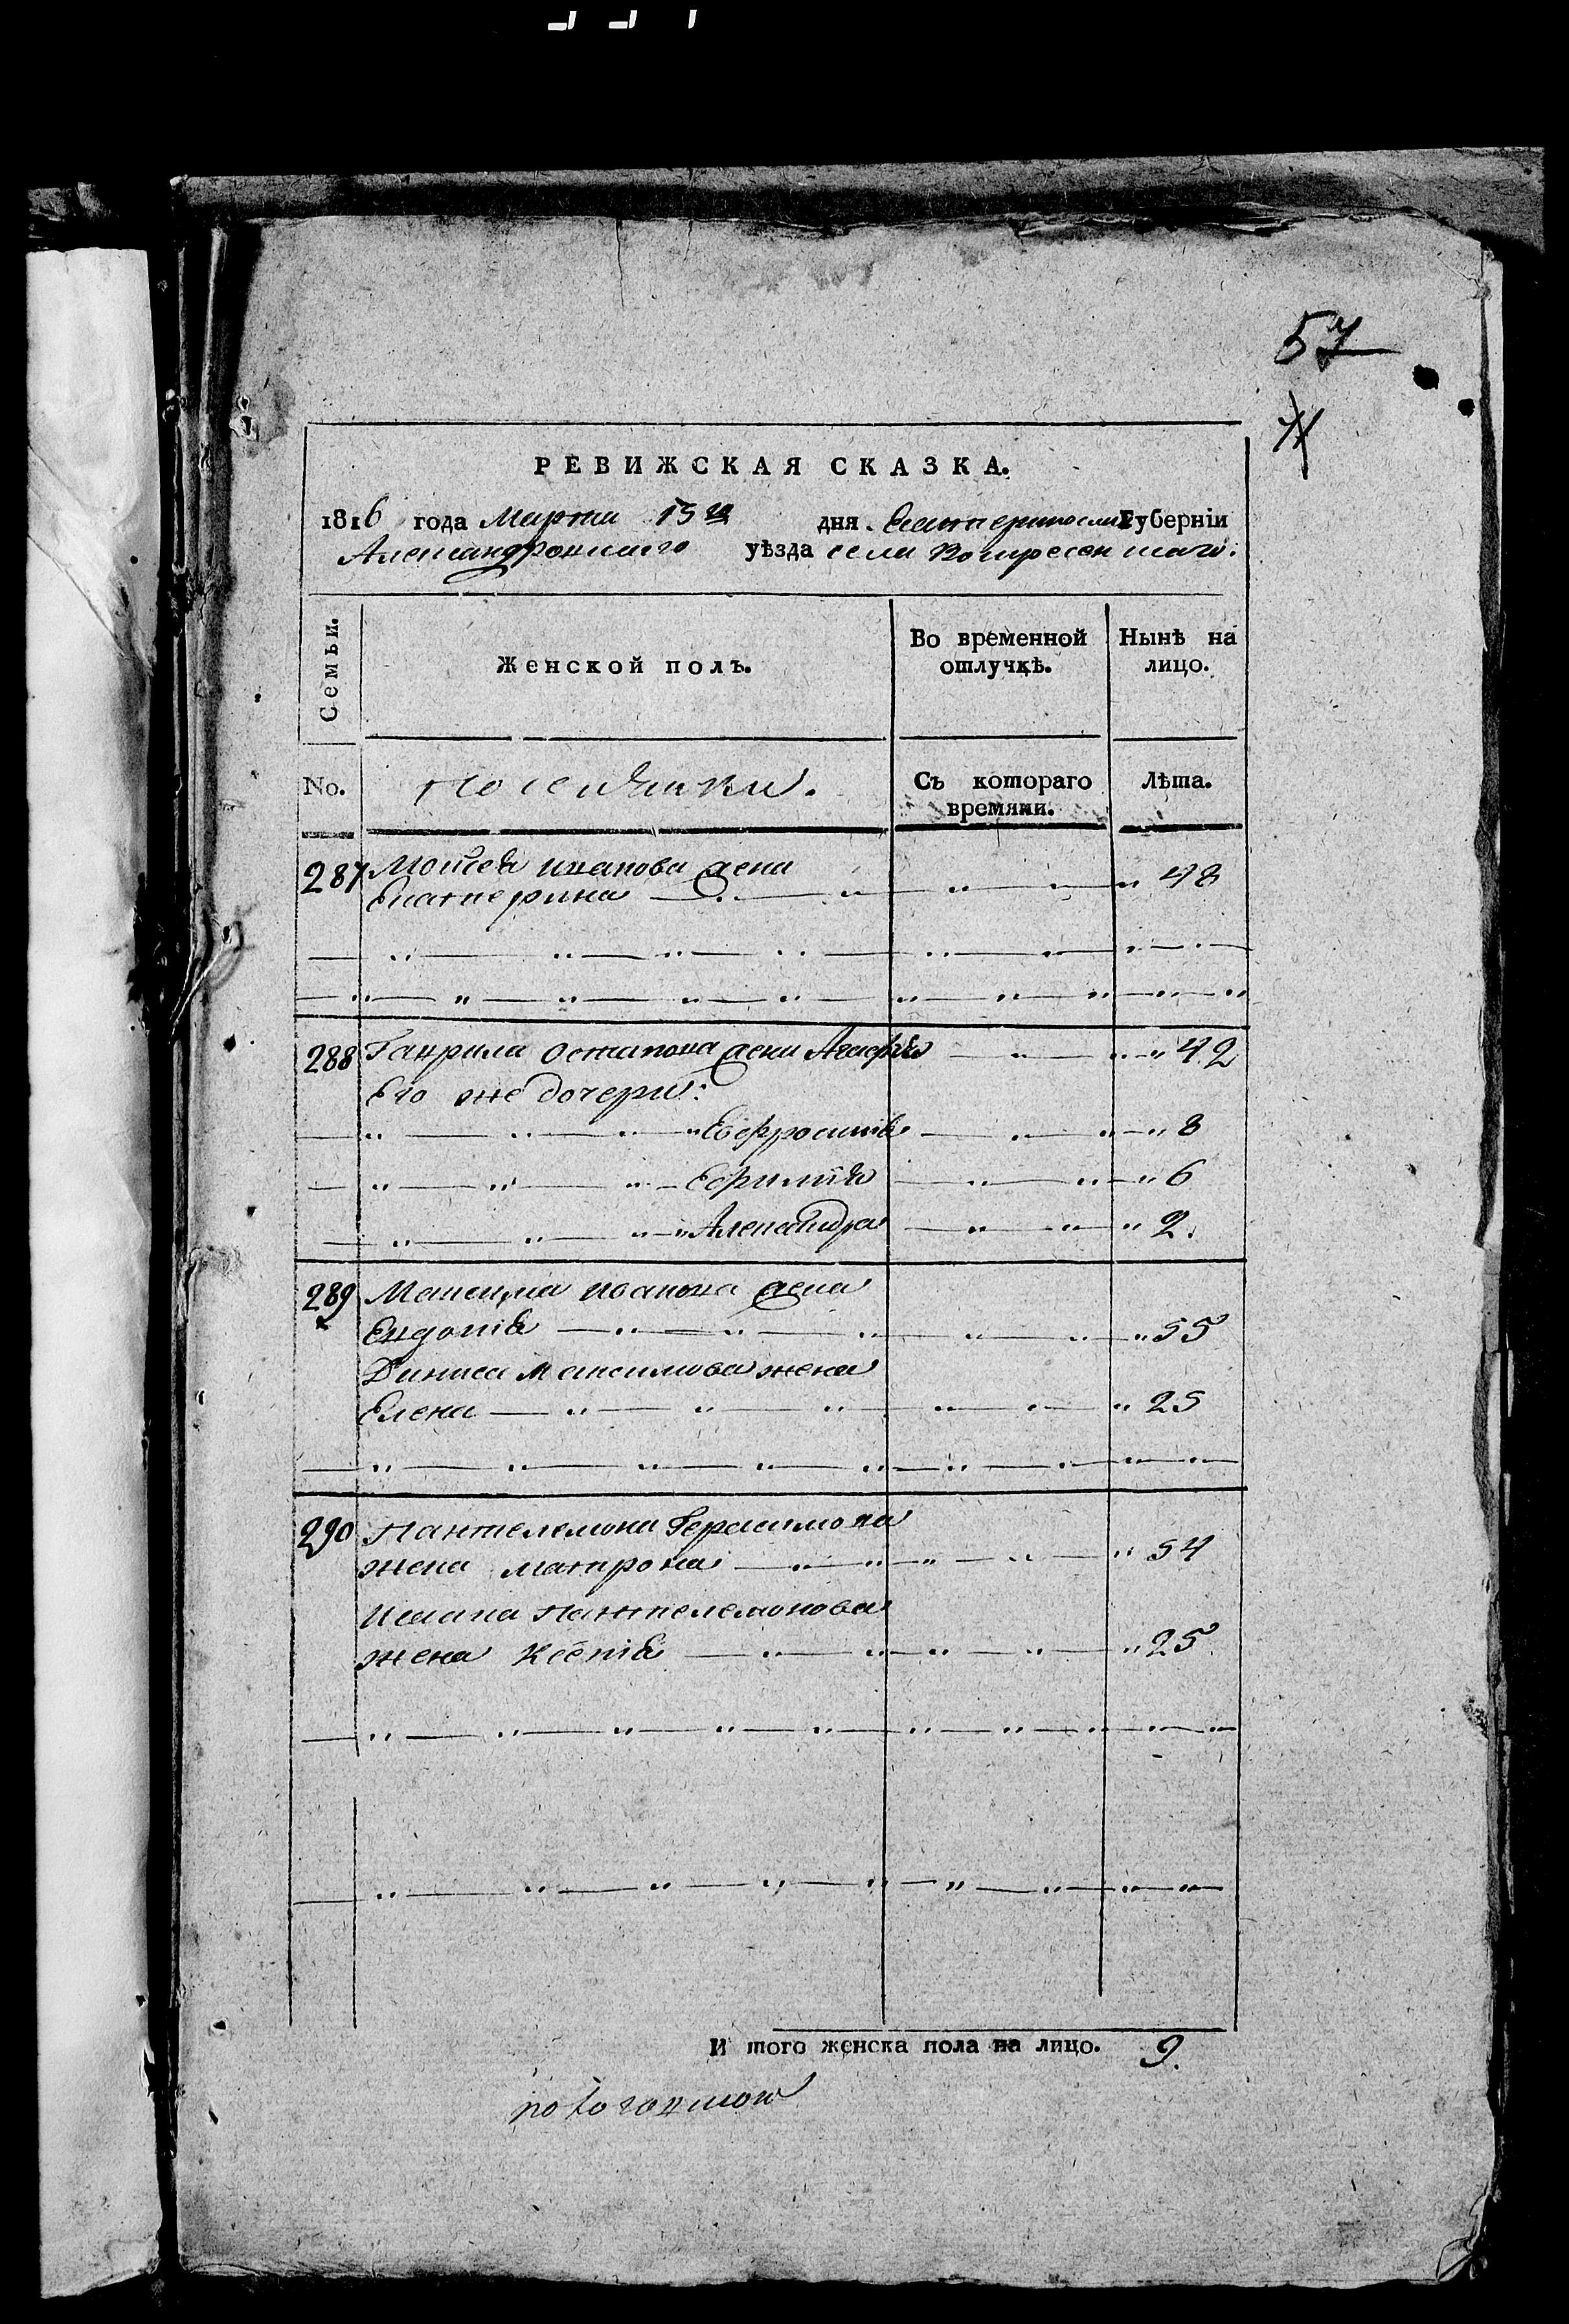 57
РЕВИЖСКАЯ СКАЗКА.
1816 года Марта 15 го дня Екатеринослав Губернїи
Александровскаго уѣзда села Воскресенскаго.
Семьи.
Женской полъ.
Во временной отлучкѣ.
Нынѣ на лицо.
No.
Поселянки.
Съ котораго времяни.
Лѣта.
287 Моисея иванова жена
Екатерина 48
288 Гаврила остапова жена Агафїя 42
Его же дочери:
Ефросинїя 8
Ефимїя 6
Александра 2.
289 Максима иванова жена
Евдокїя 55
Дениса Максимова жена
Елена 25
290 Пантелемона Герасимова
жена матрона 54
Ивана Пантелемонова
жена Ксенїя 25
И того женска пола на лицо. 9.